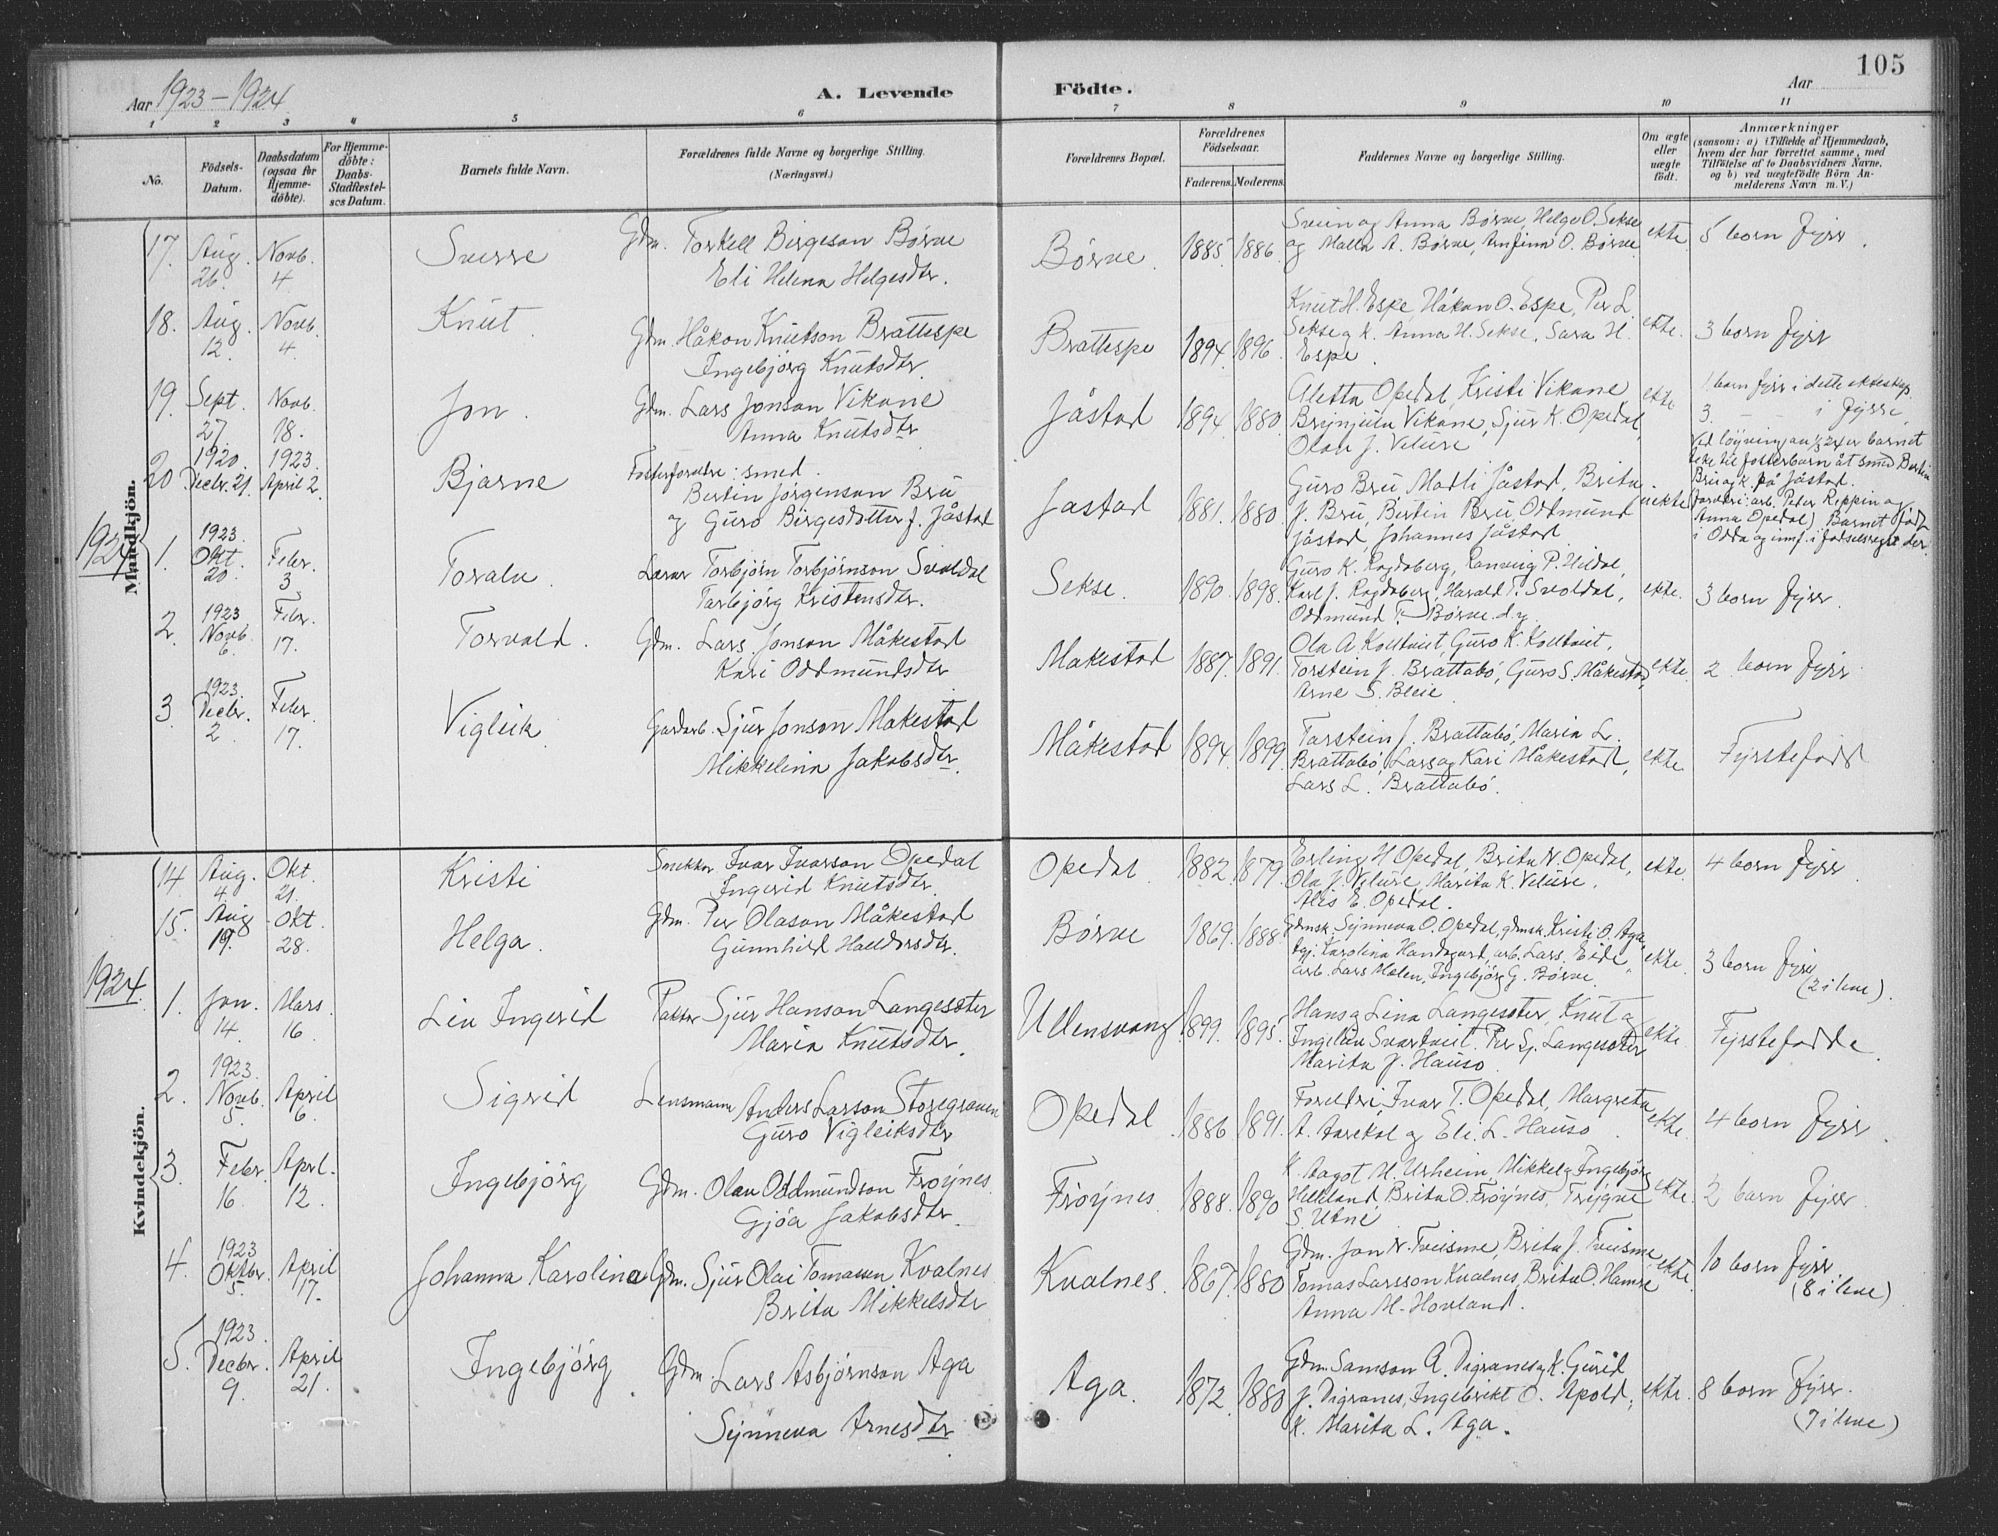 Aar 1923-1924 A. Levende Födte. Aar 105
1 2 3 4 5 6 7 8 9 10 11
No.
Födsels-Datum.
Daabsdatum (ogsaa for Hjemmedöbte).
For Hjemmedöbte: Daabs-Stadfæstelses Datum.
Barnets fulde Navn.
Forældrenes fulde Navne og borgerlige Stilling. (Næringsvei.)
Forældrenes Bopæl.
Forældrenes Födselsaar.
Faderens. Moderens.
Faddernes Navne og borgerlige Stilling.
Om ægte eller uægte födt.
Anmærkninger
(saasom: a) i Tilfælde af Hjemmedaab, hvem der har forrettet samme, med Tilföielse af to Daabsvidners Navne, og b) ved uægtefödte Börn Anmelderens Navn m. V.)
Mandkjön.
17. Aug. 26. Novb. 4 Sverre Gdm. Torkell Birgeson Børve
Eli Helena Helgesdtr.
Børve. 1885. 1886.
Svein og Anna Børve, Helge O. Sekse
og Malla A. Børve, Arnfinn O. Børve
ekte. 5 born fyrr.
18. Aug. 12. Novb. 4. Knut. Gdm. Håkon Knutson Brattespe
Ingebjørg Knutsdtr.
Brattespe 1894. 1896.
Knut H. Espe, Håkon O. Espe, Per L.
Sekse og k. Anna H. Sekse, Sara H.
Espe.
ekte. 3 born fyrr
19. Sept. 27. Novb. 18. Jon. Gdm. Lars Jonson Vikane
Anna Knutsdtr
Jåstad 1894. 1880.
Aletta Opedal, Kristi Vikane,
Brynjulv Vikane, Sjur K. Opedal,
Olav J. Velure
ekte 1 born fyrr i dette ekteskap
3. — i fyrre
20 1920 Decbr. 21. 1923. April 2. Bjarne Fosterforeldre: smed.
Bertin Jørgenson Bru
og Guro Birgesdotter f. Jåstad
Jåstad 1881. 1880
Guro Bru, Madli Jåstad, Brita
J. Bru, Bertin Bru, Oddmund
Jåstad, Johannes Jåstad
uekte
Ved løyving av 24 er barnet
teke til fosterbarn åt smed Bertin
Bru og k. på Jåstad.
foreldri: arb. Peter Reppin og
Anna Opedal). Barnet født
i Odda og innf. i fødselsregst der
1924
1. 1923. Okt. 20. Febr. 3 Toralv. Lærar Torbjørn Torbjørnson Svoldal
Torbjørg Kristensdtr.
Sekse. 1890. 1898.
Guro K. Ragdeberg, Ranveig P. Hildal,
Karl J. Ragdeberg, Harald T. Svoldal,
Oddmund T. Børve d.y.
ekte. 3 born fyrr.
2. 1923 Novb. 6. Febr. 17. Torvald. Gdm. Lars Jonson Måkestad
Kari Oddmundsdtr
Måkestad 1887. 1891.
Ola A Kolltveit, Guro K. Kolltveit,
Torstein J. Brattabø, Guro S. Måkestad,
Arne S. Bleie
ekte. 2 born fyrr
3. 1923. Decbr. 2. Febr. 17. Vigleik. Gardarb. Sjur Jonson Måkestad
Mikkelina Jakobsdtr.
Måkestad 1894. 1899.
Torstein J. Brattabø, Maria L.
Brattabø, Lars og Kari Måkestad,
Lars L. Brattabø.
ekte. Fyrstefødd
Kvindekjön.
14. Aug. 4 Okt. 21. Kristi Snikkar Ivar Ivarson Opedal
Ingerid Knutsdtr.
Opedal. 1882. 1879.
Erling H Opedal, Brita N. Opedal,
Ola J. Velure, Marita K. Velure,
Alis E. Opedal.
ekte. 4 born fyrr.
15. Aug 19. Okt. 28. Helga. Gdm. Per Olason Måkestad
Gunnhild Halldorsdtr.
Børve 1869. 1888.
Gdmsk. Synneva O. Opedal, gdmsk. Kristi O. Aga,
Karolina Handegard, arb. Lars Eide,
arb. Lars Mælen, Ingebjørg G. Børve
ekte. 3 born fyrr
(2 i live).
1924.
1. Jan. 14. Mars 16. Liv Ingerid Sjur Hanson Langesæter
Maria Knutsdtr.
Ullensvang 1899. 1895.
Hans og Lina Langesæter, Knut og
Ingeleiv Svartveit. Per Sj. Langesæter
Marita J. Hauso.
ekte. Fyrstefødde.
2. 1923. Novb. 5. April 6. Sigrid Lensmann Anders Larson Storegraven
Guro Vigleiksdtr
Opedal. 1886 1891.
Foreldri, Ivar T. Opedal, Margreta
A. Aarekol og Eli L. Hauso.
ekte. 4 born fyrr.
3. Febr. 16. Aprl. 12. Ingebjørg Gdm. Olav Oddmundson Frøynes.
Gjøa Jakobsdtr.
Frøynes. 1888. 1890
K. Aagot M. Urheim, Mikkel og Ingebjørg
Helleland, Brita O. Frøynes, Trygve
S. Utne
ekte. 2 born fyrr.
4. 1923 Oktbr. 5. April 17. Johanna Karolina Gdm. Sjur Olai Tomassen Kvalnes
Brita Mikkelsdtr
Kvalnes. 1867. 1880
Gdm. Jon N. Tveisme, Brita J. Tveisme
Tomas Larsson Kvalnes, Brita O. Hamre
Anna M. Hovland.
ekte. 10 born fyrr.
(8 i live)
5. 1923. Decbr. 9. April 21. Ingebjørg. Gdm. Lars Asbjørnson Aga
Synneva Arnesdtr
Aga. 1872. 1880
Gdm. Samson A. Digranes og k. Gurid
J. Digranes, Ingebrikt O. Apold,
K. Marita L. Aga.
ekte. 8 born fyrr.
(7 i live)